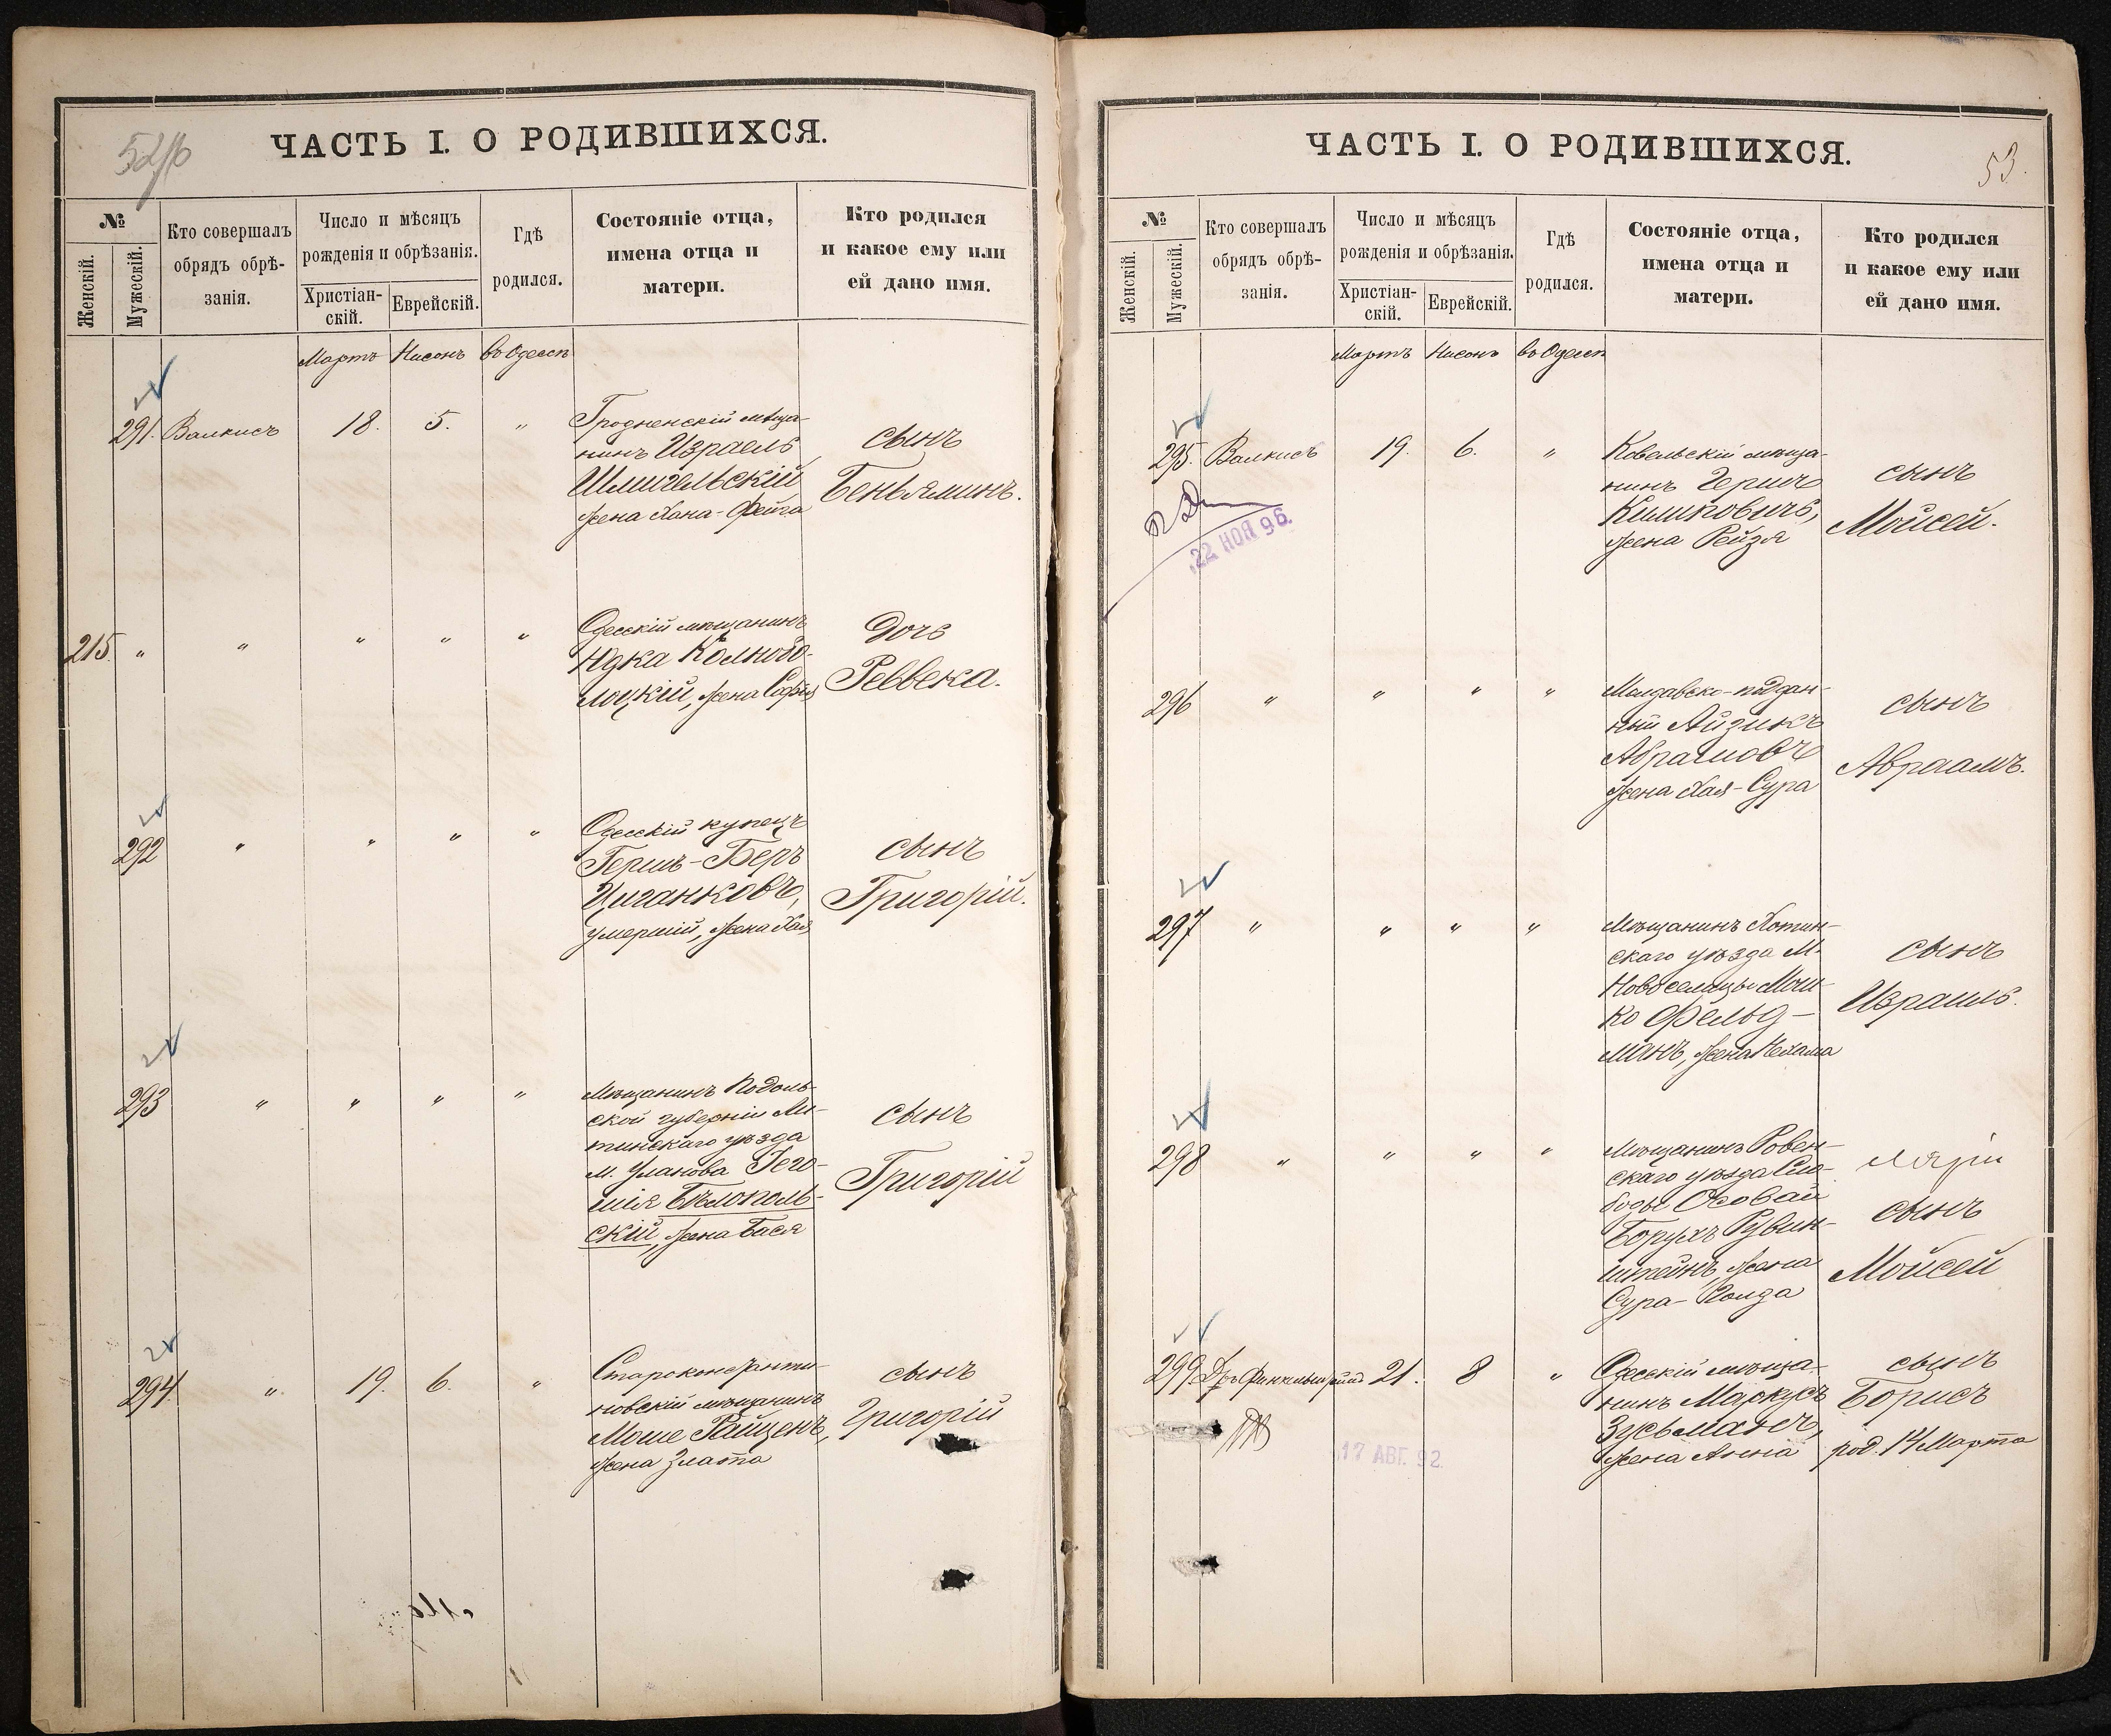 ЧАСТЬ I. О РОДИВШИХСЯ.
№
Женскій.
Мужескій.
Кто совершалъ
обрядъ обрѣ-
занія.
Число и мѣсяцъ
рожденія и обрѣзанія.
Христіан-
скій.
Еврейскій.
Гдѣ
родился.
Состояніе отца,
имена отца и
матери.
Кто родился
и какое ему или
ей дано имя.
Мартъ Нисонъ въ Одессѣ
291. Валкисъ 18. 5. "
Гродненскій мѣща-
нинъ Израель
Шмигельскій
жена Хана-Фейга
сынъ
Беньяминъ.
215. " " " " "
Одесскій мѣщанинъ
Юдка
жена Софія
Дочь
Реввека.
292 " " " "
Одесскій купецъ
Гершъ-Беръ
Циганковъ,
умершій, жена Хая
сынъ
Григорій.
293 " " " "
Мѣщанинъ Подоль-
ской губерніи Ли-
тинскаго уѣзда
м. Уланова Іего-
шія Бѣлополь-
скій, жена Бася
сынъ
Григорій
294. " 19. 6. "
Староконстанти-
новскій мѣщанинъ
Моше Райценъ,
жена Злата
сынъ
Григорій
ЧАСТЬ I. О РОДИВШИХСЯ.
53.
№
Женскій.
Мужескій.
Кто совершалъ
обрядъ обрѣ-
занія.
Число и мѣсяцъ
рожденія и обрѣзанія.
Христіан-
скій.
Еврейскій.
Гдѣ
родился.
Состояніе отца,
имена отца и
матери.
Кто родился
и какое ему или
ей дано имя.
Мартъ Нисонъ въ Одессѣ
295. Валкисъ 19. 6. "
22 НОЯ 96.
Ковельскій мѣща-
нинъ Гершъ
Климковичъ,
жена Рейзя
сынъ
Мойсей.
296 " " " "
Молдавско-поддан-
ный Айзикъ
Абрамовъ
жена Хая-Сура
сынъ
Авраамъ.
297 " " " "
Мѣщанинъ Хотин-
скаго уѣзда М.
Новоселицы Мош-
ко Фельд-
манъ, жена Нехама
сынъ
Израиль.
298 " " " "
Мѣщанинъ Ровен-
скаго уѣзда Сло-
боды Осовай
Борухъ Рувин-
штейнъ, жена
Сура-
сынъ
Мойсей
299 Дръ 21. 8 "
17 АВГ. 92.
Одесскій мѣща-
нинъ Маркусъ
Зусьманъ,
жена Анна
сынъ
Борисъ
род. 14 Марта